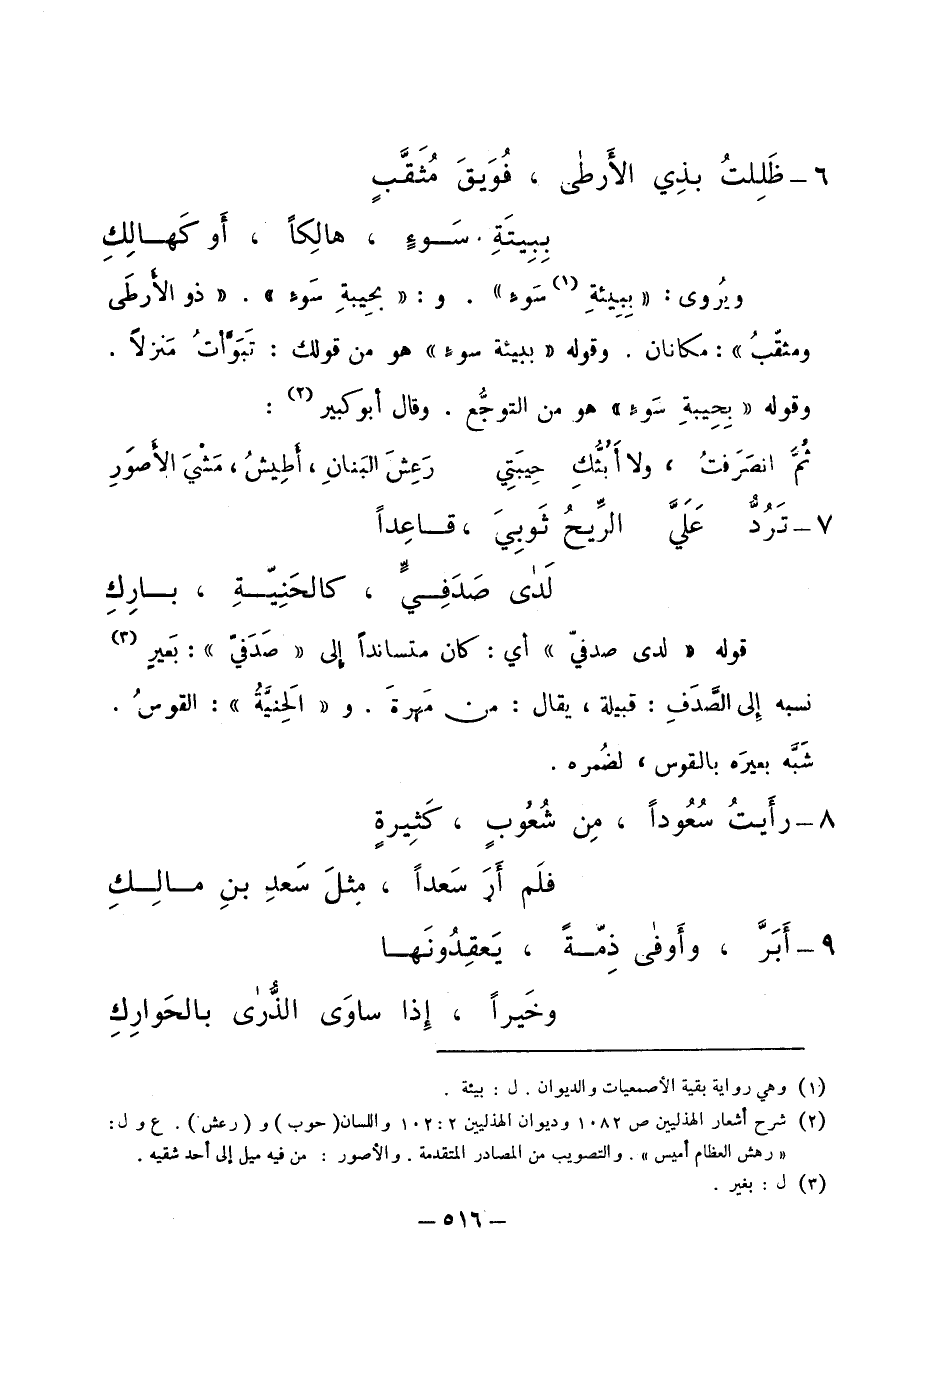 ٦ – ظَلِلتُ بذِي الأَرطٰى ، فُوَيقَ مُثَقَّبٍ
بِبِيتَةِ سَـوءٍ ، هالِكاً ، أَو كَهـالِكِ
ويُروى : « بِبِيئةِ (١) سَوء » . و : « بحِيبةِ سَوء » . « ذو الأَرطَى
ومثقّبُ » : مكانان . وقوله « ببيئة سوء » هو من قولك : تَبَوَّأتُ مَنزلاً .
وقوله « بِحِيبةِ سَوء » هو من التوجُّع . وقال أبو كبير (٢) :
ثُمَّ انصَرَفتُ ، ولا أَبُثُّكِ حِيبَتِي رَعِشَ البَنانِ ، أَطِيشُ ، مَشْيَ الأَصوَرِ
٧ – تَرُدُّ عَلَيَّ الرِّيحُ ثَوبِيَ ، قـاعِداً
لَدٰى صَدَفِـيٍّ ، كالحَنِيّـةِ ، بـارِكِ
قوله « لدى صدفيّ » أي : كان متسانداً إلى « صَدَفيّ » : بَعيرٍ (٣)
نسبه إلى الصَّدَفِ : قبيلة ، يقال : من مَهرةَ . و « الحَنيَّةُ » : القوسُ .
شَبَّه بعيرَه بالقوس ، لضُمره .
٨ – رأَيتُ سُعُوداً ، مِن شُعُوبٍ ، كَثِيرةٍ
فلَم أَرَ سَعداً ، مِثلَ سَعدِ بنِ مـالِـكِ
٩ – أَبَرَّ ، وأَوفٰى ذِمّـةً ، يَعقِدُونَهـا
وخَيراً ، إِذا ساوَى الذُّرٰى بالحَوارِكِ
(١) وهي رواية بقية الأصمعيات والديوان . ل : بيئة .
(٢) شرح أشعار الهذليين ص ١٠٨٢ وديوان الهذليين ٢ : ١٠٢ واللسان ( حوب ) و ( رعش ) . ع و ل :
« رهش العظام أميس » . والتصويب من المصادر المتقدمة . والأصور : من فيه ميل إلى أحد شقيه .
(٣) ل : بغير .
– ٥١٦ –